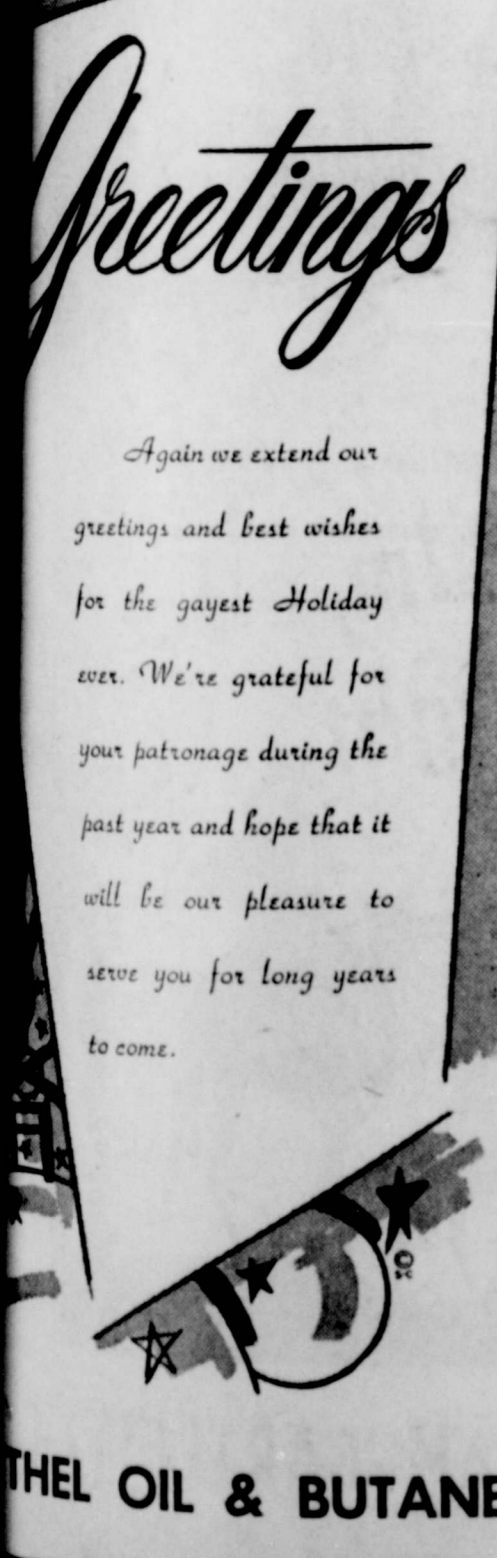 Greetings
Again we extend our
greetings and best wishes
for the gayest Holiday
ever. We're grateful for
your patronage during the
past year and hope that it
will be our pleasure to
serve you for long years
to come.
THEL OIL & BUTANE